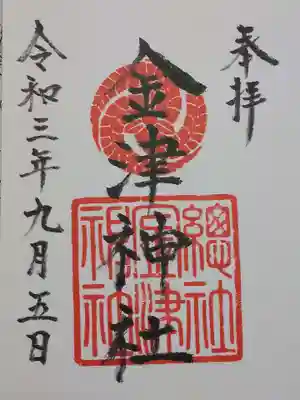 奉拝
金津神社
總社
金津
神社
令和三年九月五日